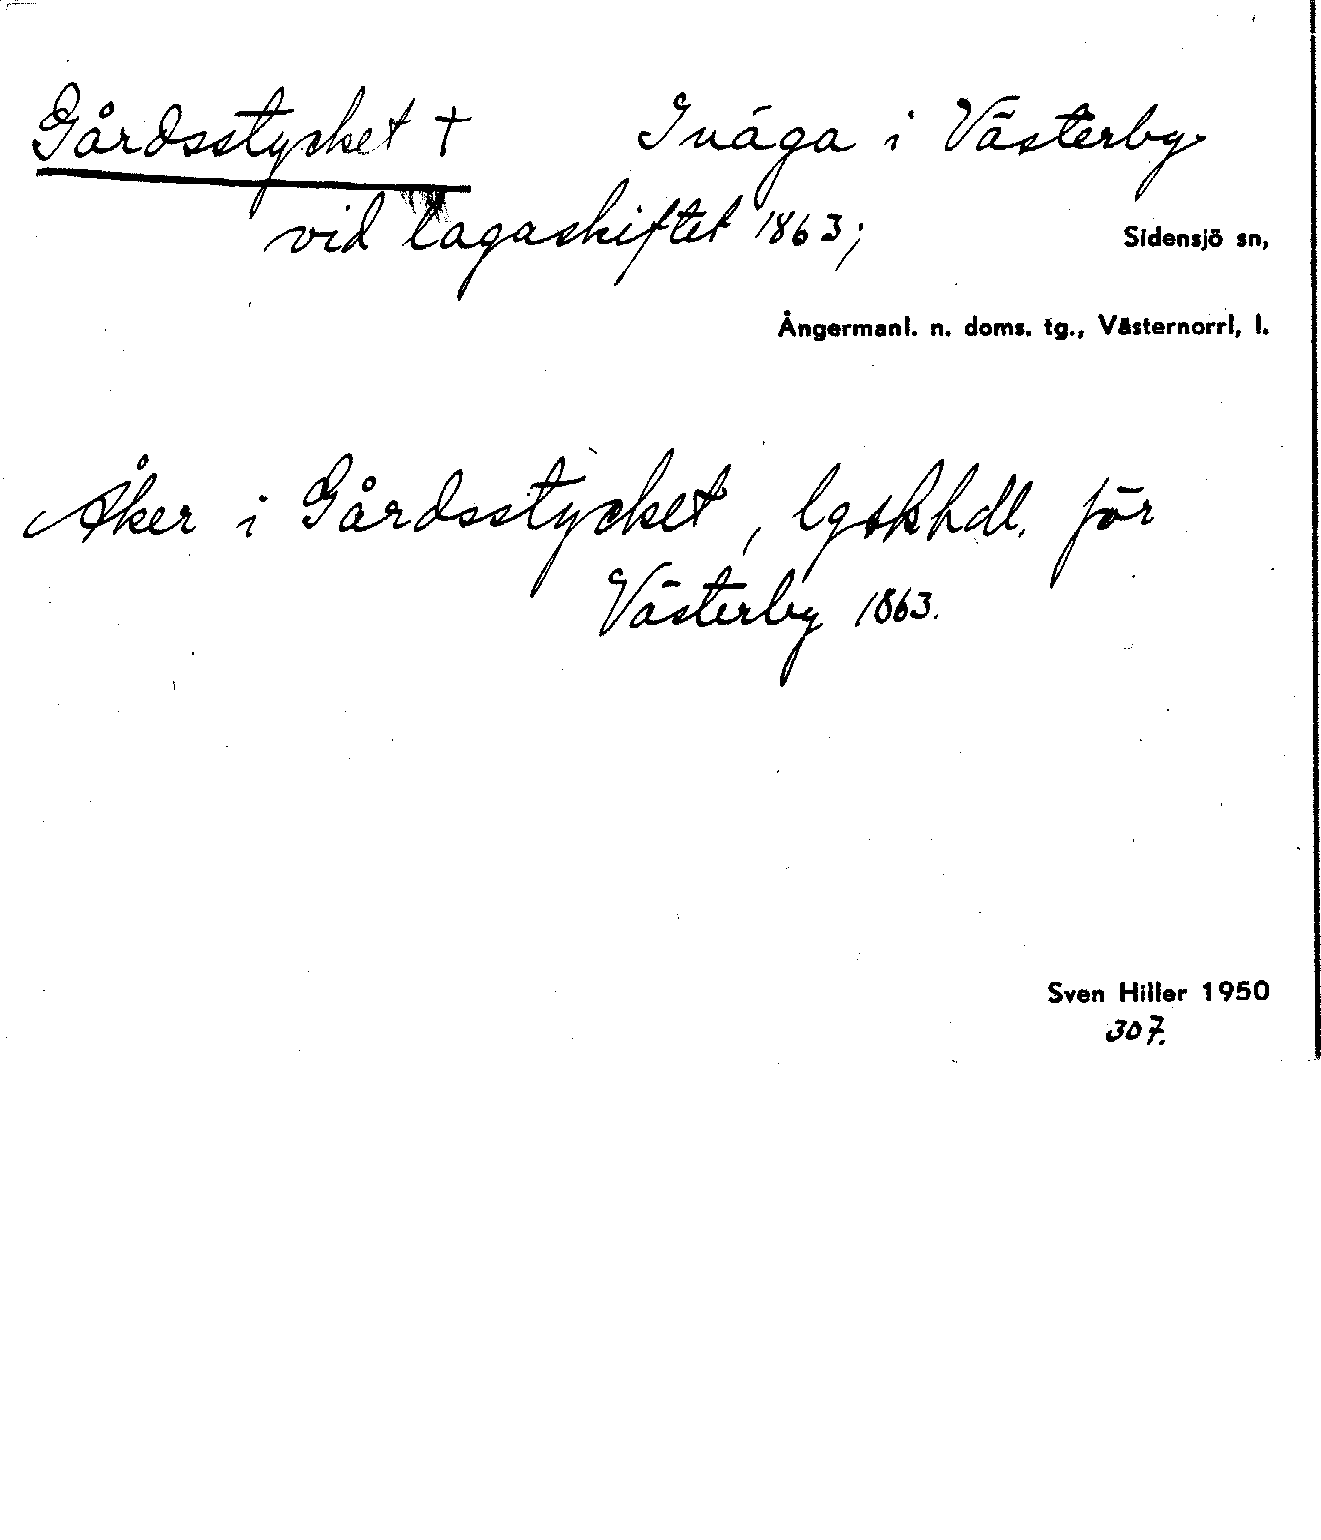 Gårdsstycket † Inäga i Västerby
vid lagaskiftet 1863;
Sidensjö sn,
Ångermanl. n. doms. tg., Västernorrl, l.
Åker i Gårdsstycket, lgskhdl. för
Västerby 1863.
Sven Hiller 1950
307.